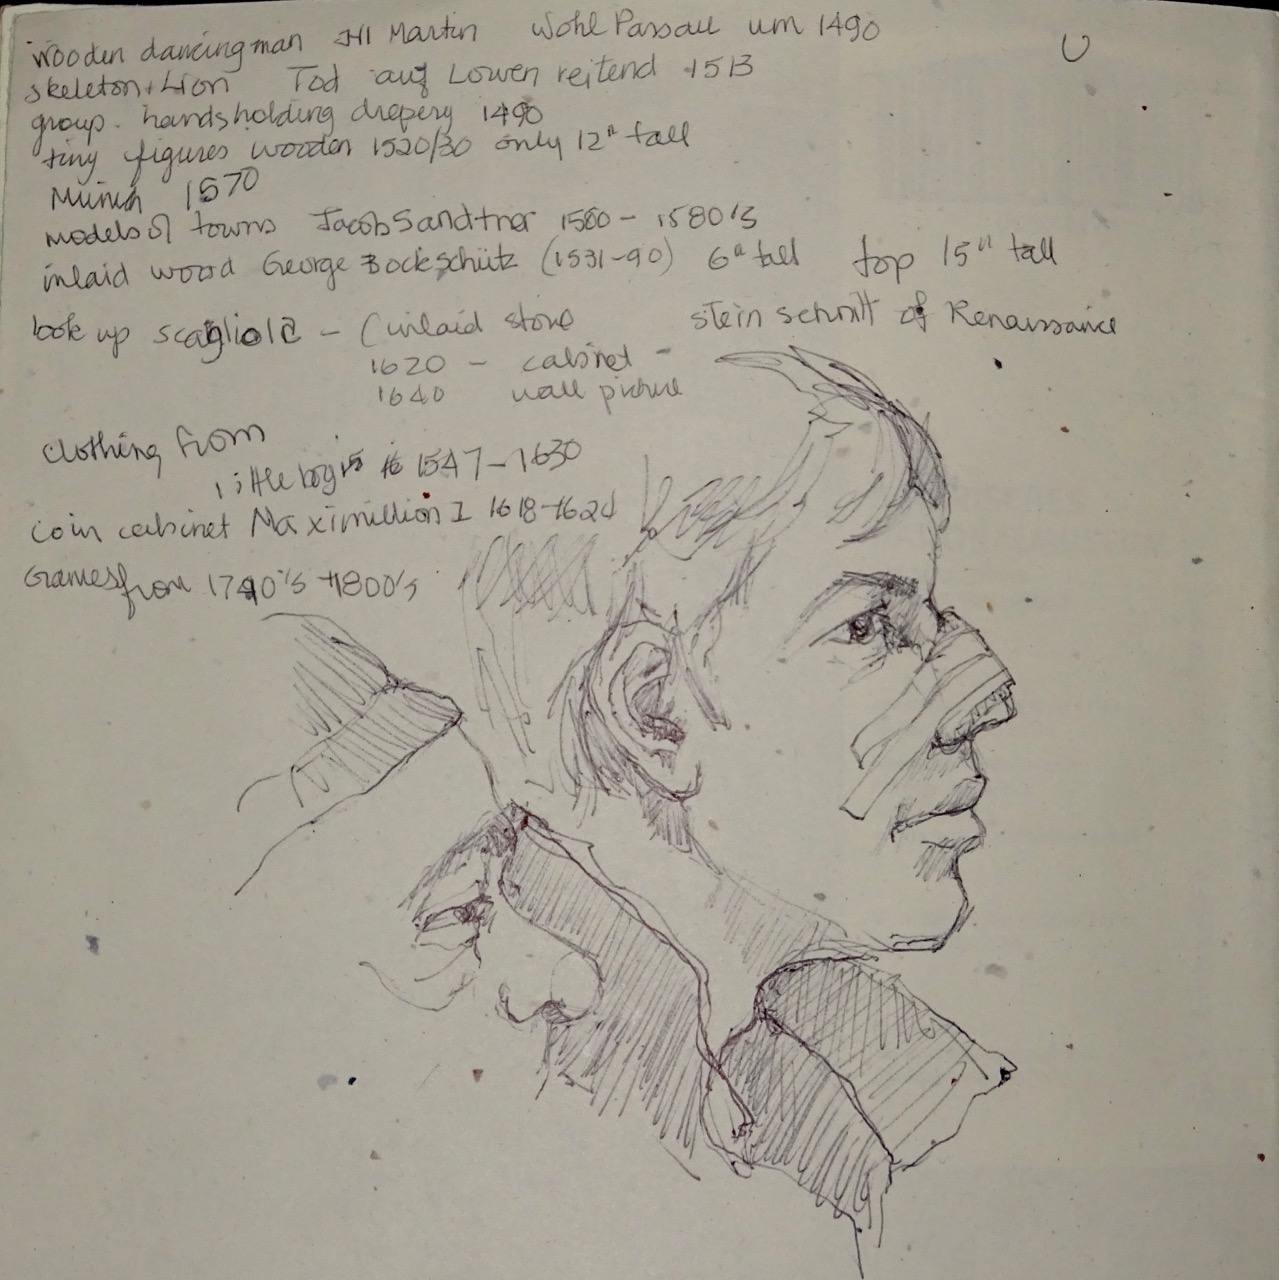 wooden dancing man Hl Martin Wohl Passau um 1490
skeleton + Lion Tod auf Lowen reitend 1513
group. hands holding drepery 1490
tiny figures wooden 1520/30 only 12" tall
Munich 1570
models of towns Jacob Sandtner 1560 - 1580's
inlaid wood George Bockschütz (1531-90) 6" tall top 15" tall
look up scagliola - (inlaid stone stein schnitt of Renaissance
1620 - cabinet -
1640 wall picture
Clothing from
little boy's 1547-1630
coin cabinet Maximillion I 1618-1624
Games from 1740's 1800's